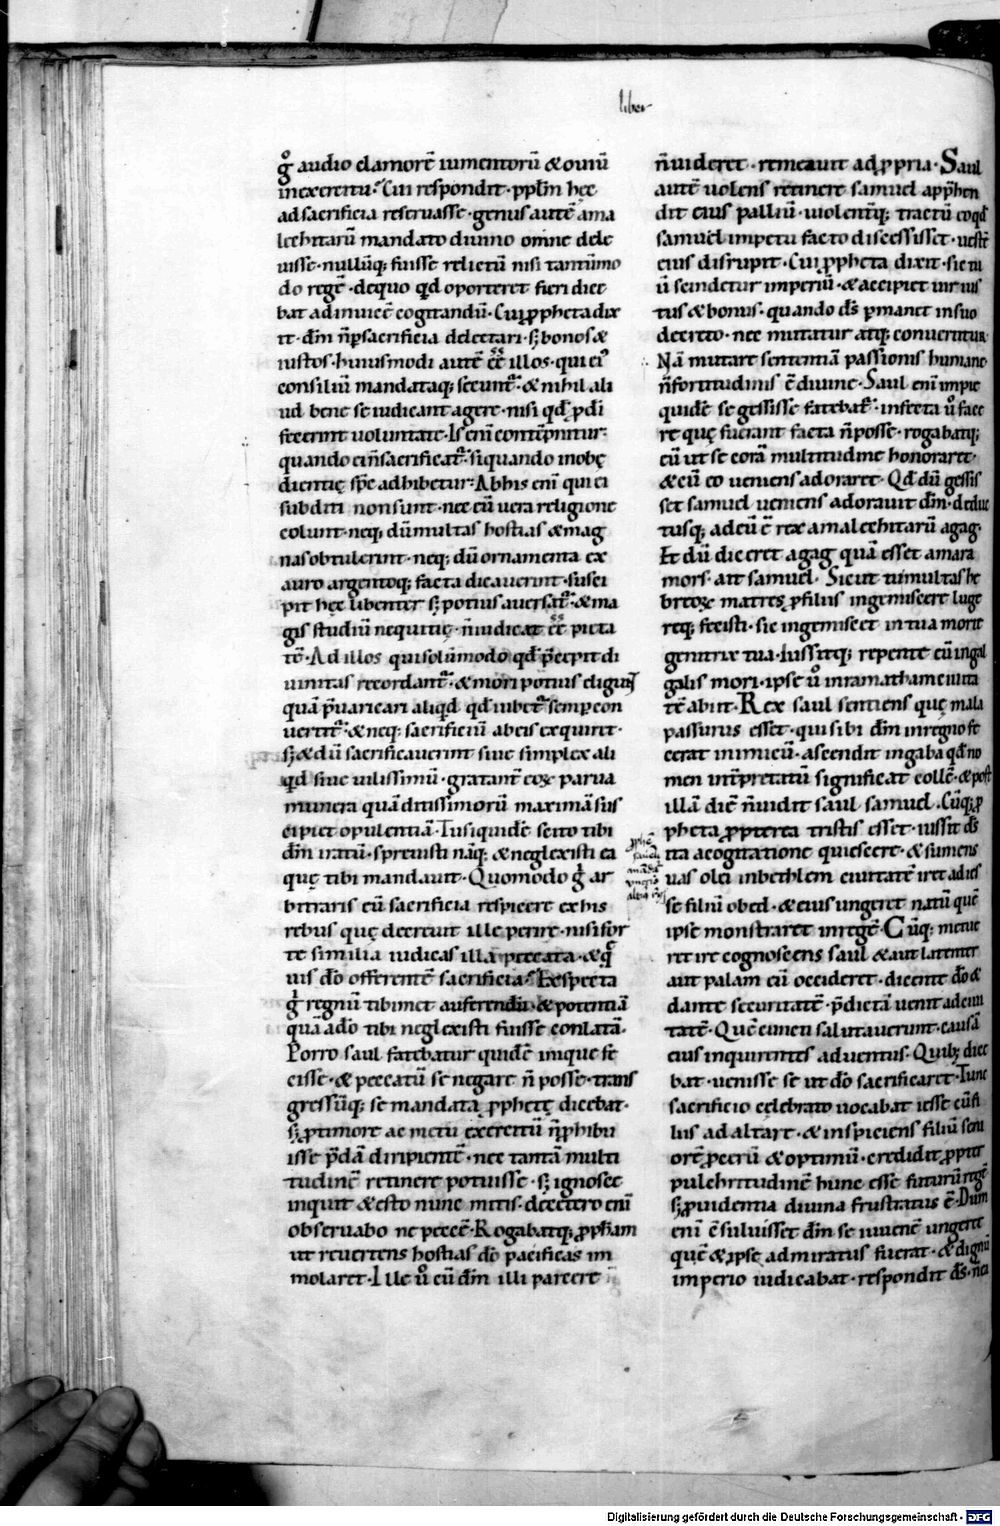 liber
g̊ audio clamorē iumentorū & ouiū
in exercitu. Cui respondit. ppl̄m hęc
ad sacrificia reseruasse. genus autē ama
lechitarū mandato diuino omne dele
uisse. nullūq; fuisse relictū nisi tantūmo
do regē. de quo qd̄ oporteret fieri dice
bat adinuicē cogitandū. Cui ꝓpheta dix
it. dn̄m n̄ sacrificia delectari. sꝫ bonos &
iustos. huiusmodi autē eē illos. qui ei᷒
consiliū mandataq; secunt᷑. & nihil ali
ud bene se iudicant agere. nisi qd̄ ꝓ dī
fecerint uoluntate. Is enī contēpnitur.
quando ei n̄ sacrificat᷑. si quando inobę
dientię spē adhibetur. Ab his enī qui ei
subditi non sunt. nec cū uera religione
colunt. neq; dū multas hostias & mag
nas obtulerint. neq; dū ornamenta ex
auro argentoq; facta dicauerint. susci
pit hęc libenter sꝫ potius auersat᷑. & ma
gis studiū nequitię. n̄ iudicat eē pieta
tē. Ad illos qui solūmodo qd̄ p̄cepit di
uinitas recordant᷑. & mori potius eligūt
quā p̄uaricari aliqd̄ qd̄ iubet᷑ semp con
uertit᷑. & neq; sacrificiū ab eis exquirit.
sꝫ & dū sacrificauerint siue simplex ali
qd̄ siue uilissimū. gratant̄ eoꝝ parua
munera quā ditissimorū maximā sus
cipiet opulentiā. Tu siquidē scito tibi
dn̄m iratū. spreuisti nāq; & neglexisti ea
quę tibi mandauit. Quomodo g̊ ar
bitraris eū sacrificia respicere ex his
rebus quę decreuit ille perire. nisi for
te similia iudicas illa peccata. & q̄
uis dō offerentē sacrificia. Exspecta
g̊ regnū tibimet auferendū. & potentiā
quā a dō tibi neglexisti fuisse conlatā.
Porro saul fatebatur quidē inique fe
cisse. & peccatū se negare n̄ posse. trans
gressūq; se mandata ꝓphetę dicebat.
sꝫ ꝓ timore ac metu exercitū n̄ ꝓhibu
isse p̄dā diripientē. nec tantā multi
tudinē retinere potuisse. sꝫ ignosce
inquit & esto nunc mitis. de cetero enī
obseruabo ne peccē. Rogabatq; ꝓph̄am
ut reuertens hostias dō pacificas im
molaret. Ille ů cū dn̄m illi parcere
n̄ uideret. remeauit ad ꝓpria. Saul
autē uolens retinere samuel app̄hen
dit eius palliū. uiolentq; tractū eo qd̄
samuel impetu facto discessisset. uestē
eius disrupit. Cui ꝓpheta dixit. sic tu
ū scindetur imperiū. & accipiet uir ius
tus & bonus. quando ds̄ pmanet in suo
decreto. nec mutatur atq; conuertitur.
Nā mutare sententiā passionis humane
n̄ fortitudinis ē diuine. Saul enī impie
quidē se gessisse fatebat᷑. infecta ů face
re quę fuerant facta n̄ posse. rogabatq;
eū ut se corā multitudine honoraret.
& cū eo ueniens adoraret. Qd̄ dū gessis
set samuel ueniens adorauit dn̄m. deduc
tusq; ad eū ē rex amalechitarū agag.
Et dū diceret agag quā esset amara
mors. ait samuel. Sicut tu multas he
breoꝝ matres ꝓ filiis ingemiscere luge
req; fecisti. sic ingemiscet in tua morte
genitrix tua. Iussitq; repente eū in gal
galis mori. ipse ů in ramatham ciuita
tē abiit. Rex saul sentiens quę mala
passurus esset. qui sibi dn̄m in regno fe
cerat inimicū. ascendit in gaba qd̄ no
men int̄pretatū significat collē. & post
illā diē n̄ uidit saul samuel. Cūq; ꝓ
pheta ꝓpterea tristis esset. iussit ds̄
ita a cogitatione quiescere. & sumens
uas olei in bethlem ciuitatē iret ad ies
se filiū obed. & eius ungeret natū quē
ipse monstraret in regē. Cūq; metue
ret ire cognoscens saul & aut latenter
aut palam eū occideret. dicente dō &
dante securitatē. p̄dictā uenit ad ciui
tatē. Quē cuncti salutauerunt. causā
eius inquirentes aduentus. Quibꝫ dice
bat. uenisse se ut dō sacrificaret. Tunc
sacrificio celebrato uocabat iesse cū fi
liis ad altare. & inspiciens filiū seni
orē ꝓcerū & optimū. credidit ꝓpter
pulchritudinē hunc esse futurū regē
sꝫ ꝓuidentia diuina frustratus ē. Dum
enī ēsuluisset dn̄m se iuuenē ungere
quē & ipse admiratus fuerat. & dignū
imperio iudicabat. respondit ds̄. n̄ ea